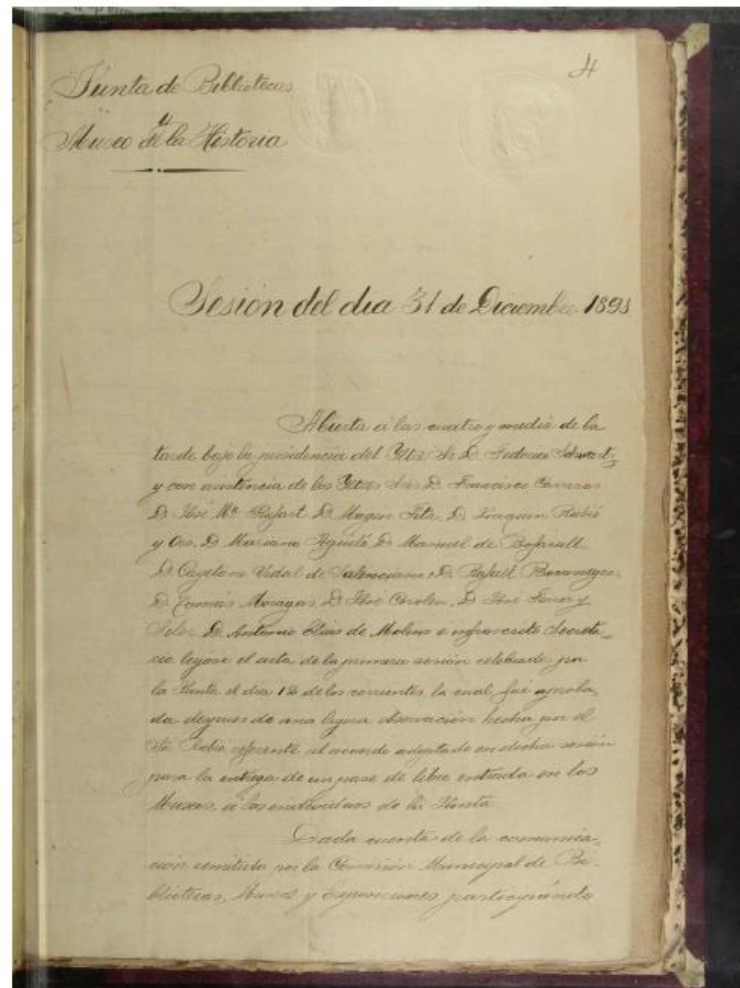 4
Junta de Bibliotecas
y
Museo de la Historia
Sesión del dia 31 de Diciembre 1891
Abierta á las cuatro y media de la
tarde bajo la presidencia del Iltre Sr. D. Federico Schwartz
y con asistencia de los Iltres Sres D. Francisco Carreras
D. José Mª Rufart D. Magin Fita, D. Joaquin Rubió
y Ors, D. Mariano Aguiló, D. Manuel de Bofarull
D. Cayetano Vidal de Valenciano, D. Rafael Bocanegra
D. Tomás Moragas, D. José Coroleu, D. José Ferrer y
Soler, D. Antonio Elias de Molins é infrascrito Secreta-
rio leyóse el acta de la primera sesión celebrada por
la Junta el dia 12 de los corrientes, la cual fué aproba-
da despues de una ligera observación hecha por el
Sr. Rubió referente al acuerdo adoptado en dicha sesión
para la entrega de un pase de libre entrada en los
Museos, á los individuos de la Junta.
Dada cuenta de la comunica-
ción remitida por la Comisión Municipal de Bi-
bliotecas, Museos y Exposiciones participando